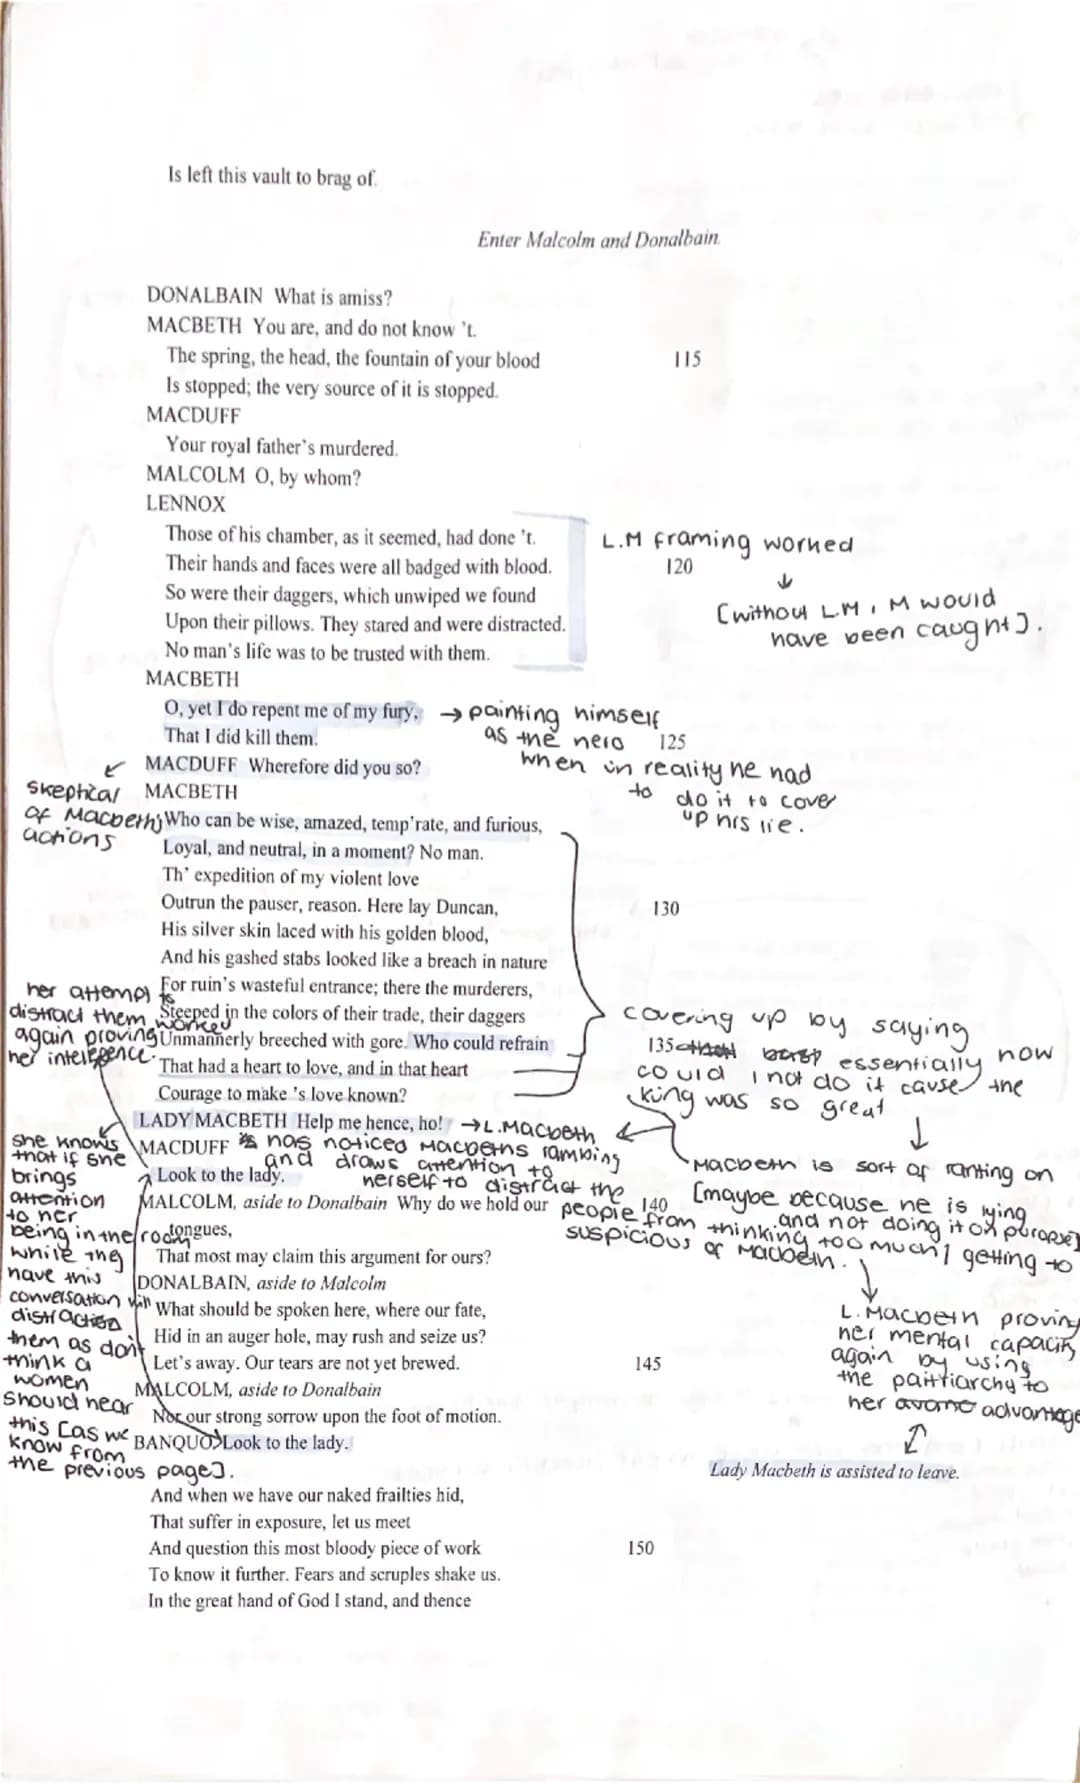 Is left this vault to brag of.
Enter Malcolm and Donalbain.
DONALBAIN What is amiss?
MACBETH You are, and do not know 't.
The spring, the head, the fountain of your blood 115
Is stopped; the very source of it is stopped.
MACDUFF
Your royal father's murdered.
MALCOLM O, by whom?
LENNOX
Those of his chamber, as it seemed, had done 't.
Their hands and faces were all badged with blood. 120
So were their daggers, which unwiped we found
Upon their pillows. They stared and were distracted.
No man's life was to be trusted with them.
L.M framing worked
↓
[without L.M, M would
have been caught].
MACBETH
O, yet I do repent me of my fury,
That I did kill them. 125
→ painting himself
as the hero
when in reality he had
to do it to cover
up his lie.
MACDUFF Wherefore did you so?
skeptical
of Macbeth's
actions
MACBETH
Who can be wise, amazed, temp'rate, and furious,
Loyal, and neutral, in a moment? No man.
Th' expedition of my violent love
Outrun the pauser, reason. Here lay Duncan, 130
His silver skin laced with his golden blood,
And his gashed stabs looked like a breach in nature
For ruin's wasteful entrance; there the murderers,
Steeped in the colors of their trade, their daggers
Unmannerly breeched with gore. Who could refrain 135
That had a heart to love, and in that heart
Courage to make 's love known?
her attempt to
distract them worked
again proving
her intellegence.
covering up by saying
essentially how
could I not do it cause the
king was so great
↓
Macbeth is sort of ranting on
[maybe because he is lying
and not doing it on purpose]
LADY MACBETH Help me hence, ho!
→ L.Macbeth
has noticed Macbeths rambling
and draws attention to
herself to distract the
people from thinking too much / getting to
suspicious of Macbeth.
L.Macbeth proving
her mental capacity
again by using
the paitriarchy to
her advantage
MACDUFF
Look to the lady.
MALCOLM, aside to Donalbain Why do we hold our 140
tongues,
That most may claim this argument for ours?
DONALBAIN, aside to Malcolm
What should be spoken here, where our fate,
Hid in an auger hole, may rush and seize us?
Let's away. Our tears are not yet brewed. 145
MALCOLM, aside to Donalbain
Nor our strong sorrow upon the foot of motion.
BANQUO Look to the lady.
she knows
that if she
brings
attention
to her
being in the room
while they
have this
conversation will
distraction
them as don't
think a
women
should hear
this [as we
know from
the previous page].
Lady Macbeth is assisted to leave.
And when we have our naked frailties hid,
That suffer in exposure, let us meet
And question this most bloody piece of work 150
To know it further. Fears and scruples shake us.
In the great hand of God I stand, and thence